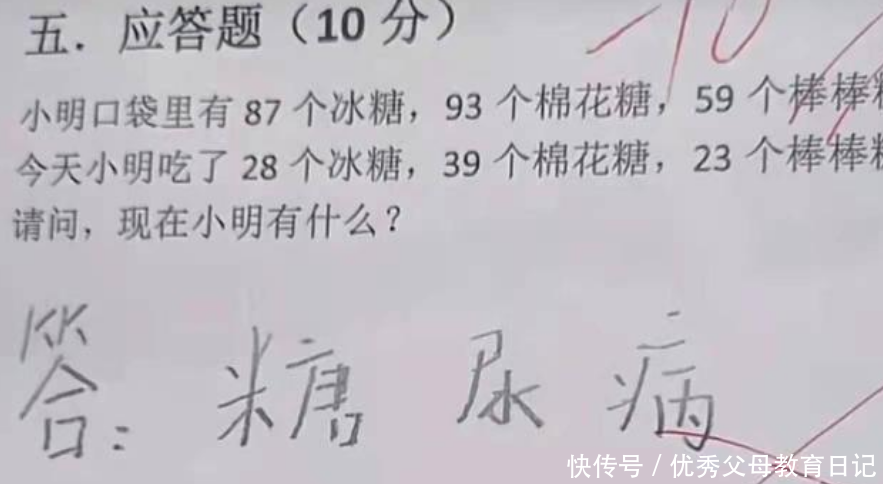 五. 应答题（10 分）
-10
小明口袋里有 87 个冰糖，93 个棉花糖，59 个棒棒
今天小明吃了 28 个冰糖，39 个棉花糖，23 个棒棒
请问，现在小明有什么？
答：糖尿病
快传号 / 优秀父母教育日记